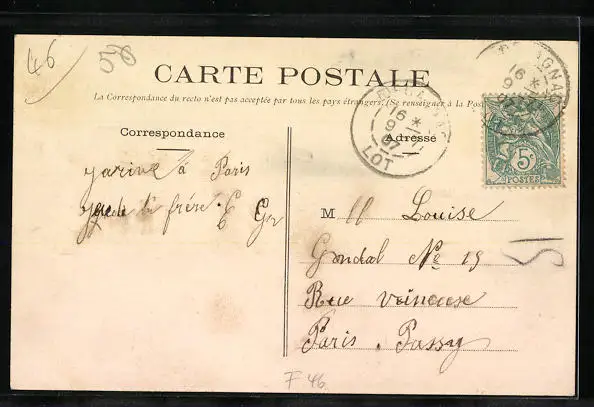 46
56
CARTE POSTALE
La Correspondance du recto n'est pas acceptée par tous les pays étrangers. (Se renseigner à la Pos
Correspondance
Adresse
16 *
9
07
LOT
16 *
9
07
5c
POSTES
jarive à Paris
frére. E G
Mll Louise
Gondal No 19
Rue vineuse
Paris. Passy
51
F 46